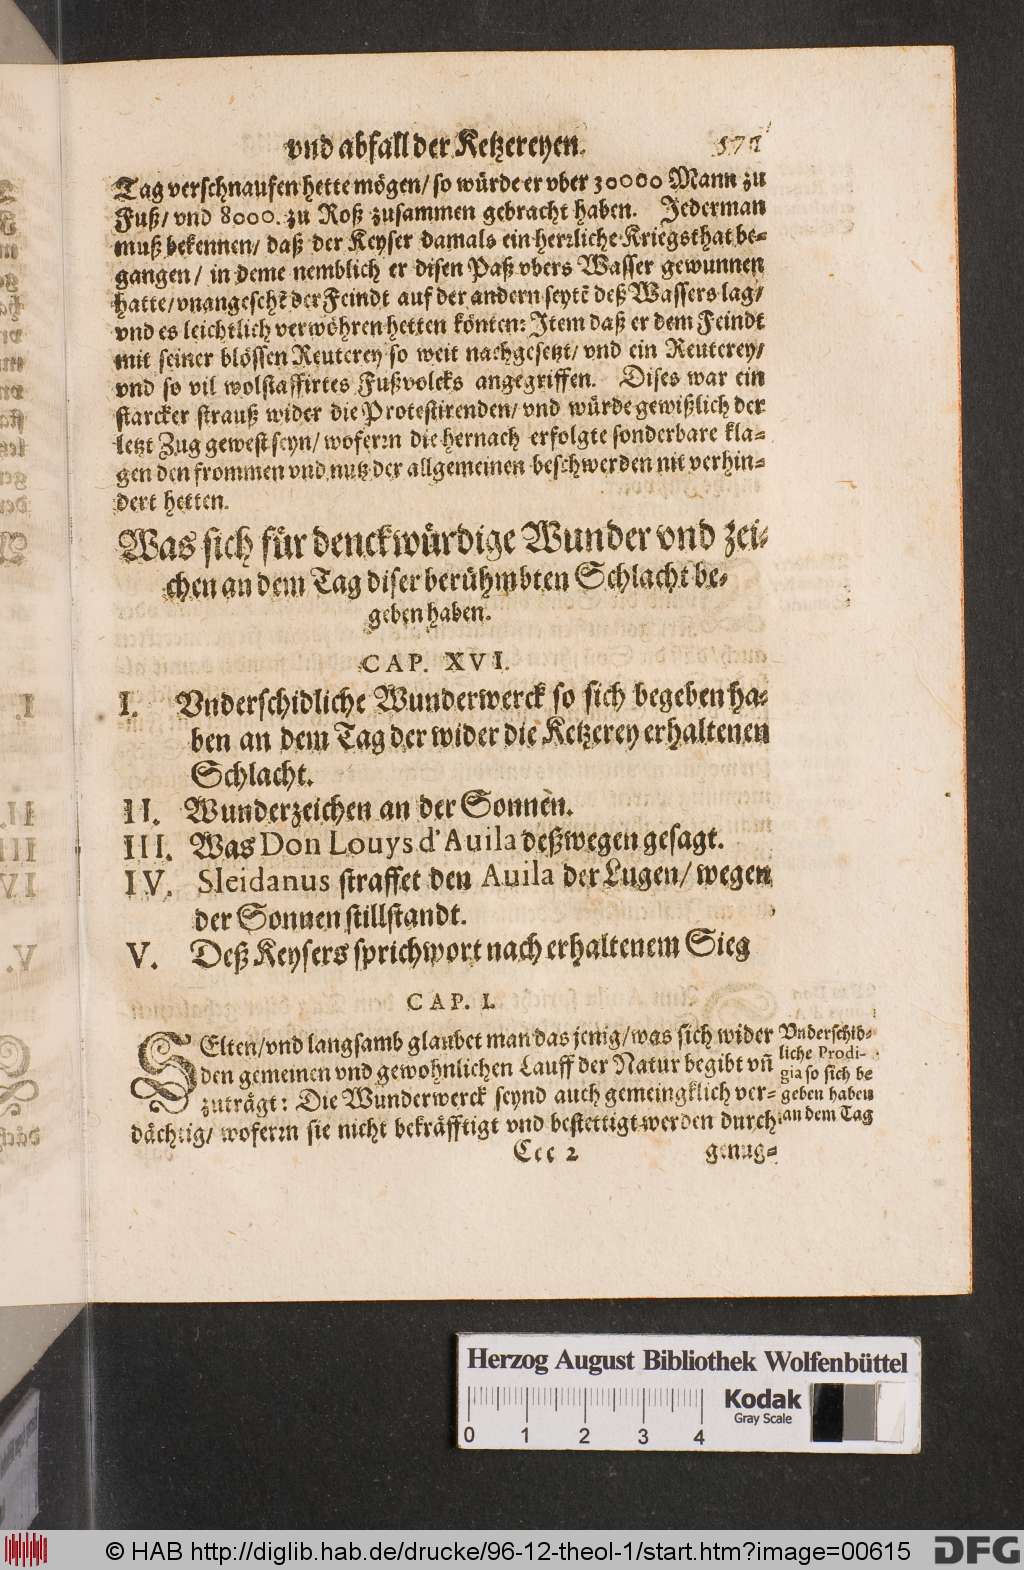 vnd abfall der Ketzereyen. 571
Tag verschnaufen hette mögen/ so würde er vber 30000 Mann zu
Fuß/ vnd 8000. zu Roß zusammen gebracht haben. Jederman
muß bekennen/ daß der Keyser damals ein herrliche Kriegsthat be-
gangen/ in deme nemblich er disen Paß vbers Wasser gewunnen
hatte/ vnangesehẽ der Feindt auf der andern seytẽ deß Wassers lag/
vnd es leichtlich verwöhren hetten könten: Item daß er dem Feindt
mit seiner blössen Reuterey so weit nachgesetzt/ vnd ein Reuterey/
vnd so vil wolstaffirtes Fußvolcks angegriffen. Dises war ein
starcker strauß wider die Protestirenden/ vnd würde gewißlich der
letzt Zug gewest seyn/ woferrn die hernach erfolgte sonderbare kla-
gen den frommen vnd nutz der allgemeinen beschwerden nit verhin-
dert hetten.
Was sich für denckwürdige Wunder vnd zei-
chen an dem Tag diser berühmbten Schlacht be-
geben haben.
CAP. XVI.
I. Vnderschidliche Wunderwerck so sich begeben ha-
ben an dem Tag der wider die Ketzerey erhaltenen
Schlacht.
II. Wunderzeichen an der Sonnen.
III. Was Don Louys d'Auila deßwegen gesagt.
IV. Sleidanus straffet den Auila der Lugen/ wegen
der Sonnen stillstandt.
V. Deß Keysers sprichwort nach erhaltenem Sieg
CAP. I.
SElten/ vnd langsamb glaubet man das jenig/ was sich wider
den gemeinen vnd gewohnlichen Lauff der Natur begibt vñ
zuträgt: Die Wunderwerck seynd auch gemeingklich ver-
dächtig/ woferrn sie nicht bekräfftigt vnd bestettigt werden durch
Vnderschid-
liche Prodi-
gia so sich be
geben haben
an dem Tag
Ccc 2 genug-
Herzog August Bibliothek Wolfenbüttel
Kodak
Gray Scale
0 1 2 3 4
© HAB http://diglib.hab.de/drucke/96-12-theol-1/start.htm?image=00615
DFG